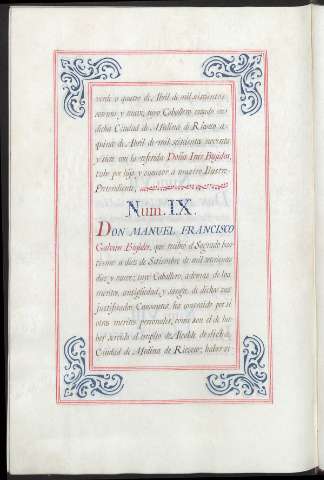 veinte o quatro de Abril de mil seiscientos
setenta y nueve, cuyo Caballero casado en
dicha Ciudad de Medina de Rioseco a
quinze de Abril de mil seiscientos noventa
y siete con la referida Doña Ines Bugedos,
tubo por hijo, y sucesor a nuestro Ilustre
Pretendiente,
Num. IX.
DON MANUEL FRANCISCO
Galvan Bujedos, que recibió el Sagrado bau-
tismo a diez de Setiembre de mil setecientos
diez y nueve; cuyo Caballero, ademas de los
meritos, antigüedad, y sangre de dichos sus
justificados Causantes, ha contraido por si
otros meritos personales, como son el de ha-
ber servido el empleo de Alcalde de dicha
Ciudad de Medina de Rioseco; haber si